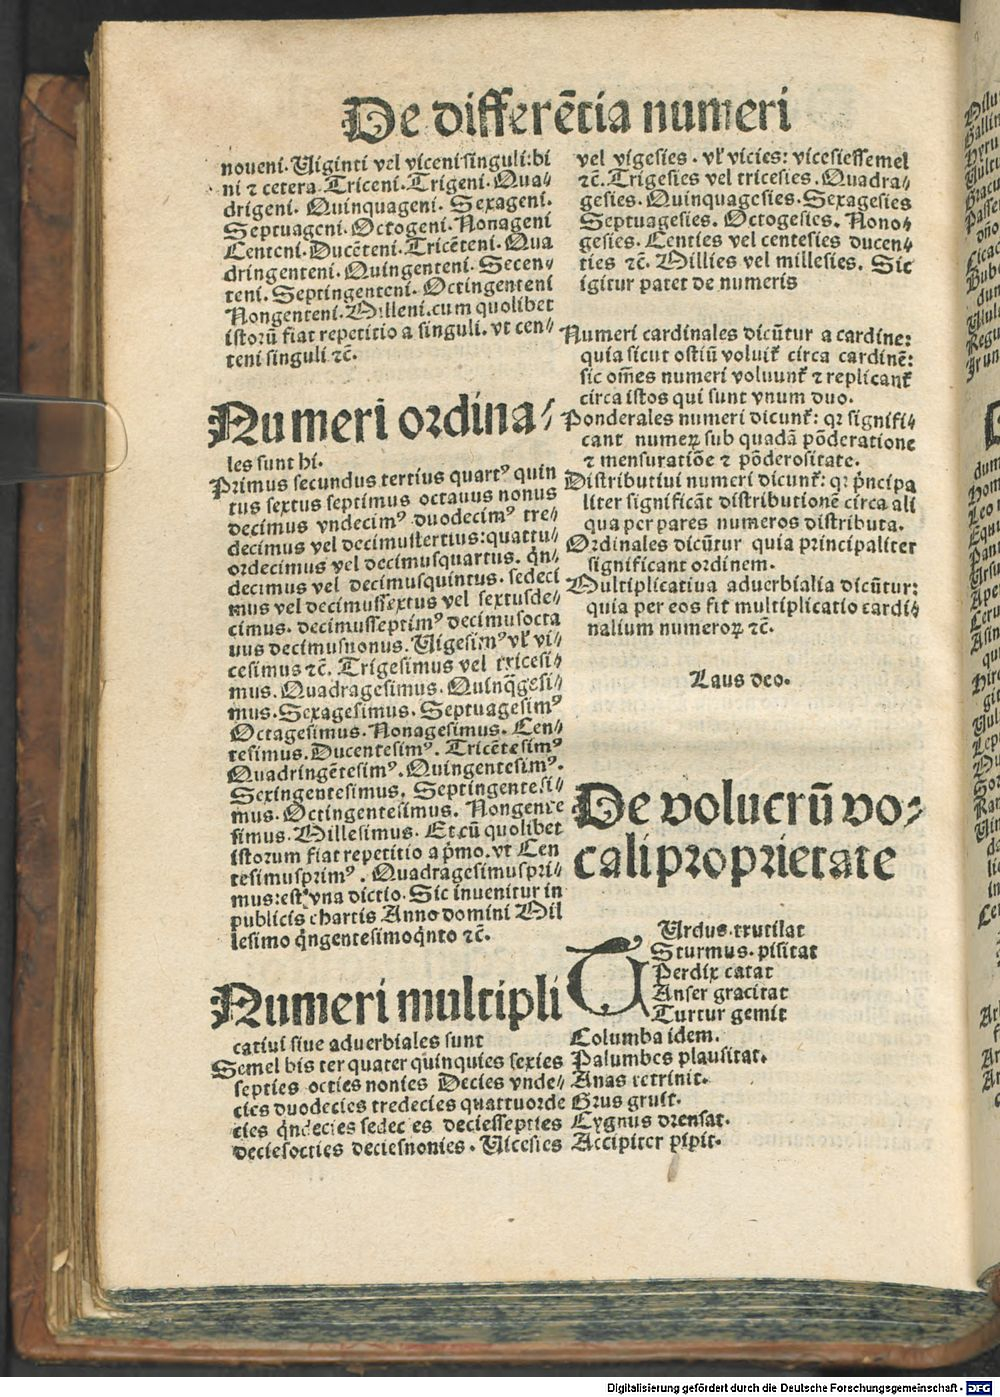 De differētia numeri
noueni. Uiginti vel viceni singuli: bi
ni ⁊ cetera. Triceni. Trigeni. Qua⸗
drigeni. Quinquageni. Sexageni.
Septuageni. Octogeni. Nonageni
Centeni. Ducēteni. Tricēteni. Qua
dringenteni. Quingenteni. Secen⸗
teni. Septingenteni. Octingenteni
Nongenteni. Milleni. cum quolibet
istorū fiat repetitio a singuli. vt cen⸗
teni singuli ⁊c̄.
Numeri ordina⸗
les sunt hi.
Primus secundus tertius quartꝰ quin
tus sextus septimus octauus nonus
decimus vndecimꝰ duodecimꝰ tre⸗
decimus vel decimustertius: quattu⸗
ordecimus vel decimusquartus. q̄n⸗
decimus vel decimusquintus. sedeci
mus vel decimussextus vel sextusde⸗
cimus. decimusseptimꝰ decimusocta
uus decimusnonus. Uigesimꝰ vl̕ vi⸗
cesimus ⁊c̄. Trigesimus vel tricesi⸗
mus. Quadragesimus. Quinq̄gesi⸗
mus. Sexagesimus. Septuagesimꝰ
Octagesimus. Nonagesimus. Cen⸗
tesimus. Ducentesimꝰ. Tricētesimꝰ
Quadringētesimꝰ. Quingentesimꝰ.
Sexingentesimus. Septingentesi⸗
mus. Octingentesimus. Nongente
simus. Millesimus. Et cū quolibet
istorum fiat repetitio a p̄mo. vt Cen
tesimusprimꝰ. Quadragesimuspri⸗
mus: est vna dictio. Sic inuenitur in
publicis chartis Anno domini Mil
lesimo q̄ngentesimoq̄nto ⁊c̄.
Numeri multipli
catiui siue aduerbiales sunt
Semel bis ter quater quinquies sexies
septies octies nonies Decies vnde⸗
cies duodecies tredecies quattuorde
cies q̄ndecies sedecies deciessepties
deciesocties deciesnonies. Uicesies
vel vigesies. vl̕ vicies: vicesiessemel
⁊c̄. Trigesies vel tricesies. Quadra⸗
gesies. Quinquagesies. Sexagesies
Septuagesies. Octogesies. Nono⸗
gesies. Centies vel centesies ducen⸗
ties ⁊c̄. Millies vel millesies. Sic
igitur patet de numeris
Numeri cardinales dicūtur a cardine:
quia sicut ostiū voluit᷑ circa cardinē:
sic om̄es numeri voluunt᷑ ⁊ replicant᷑
circa istos qui sunt vnum duo.
Ponderales numeri dicunt᷑: qꝛ signifi⸗
cant numeꝝ sub quadā pōderatione
⁊ mensuratiōe ⁊ pōderositate.
Distributiui numeri dicunt᷑: qꝛ p̄ncipa
liter significāt distributionē circa ali
qua per pares numeros distributa.
Ordinales dicūtur quia principaliter
significant ordinem.
Multiplicatiua aduerbialia dicūtur:
quia per eos fit multiplicatio cardi⸗
nalium numeroꝝ ⁊c̄.
Laus deo.
De volucrū vo⸗
cali proprietate
TUrdus. trutilat
Sturmus. pisitat
Perdix catat
Anser gracitat
Turtur gemit
Columba idem.
Palumbes plausitat.
Anas tetrinit.
Grus gruit.
Cygnus drensat.
Accipiter pipit.
Digitalisierung gefördert durch die Deutsche Forschungsgemeinschaft - DFG